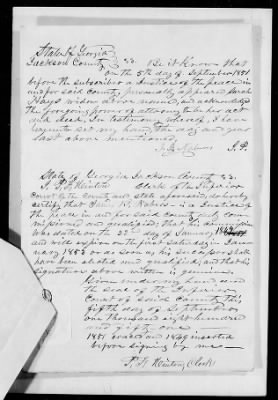 State of Georgia
Jackson County } SS. Be it Known that
on the 5th day of September 1851
before the subscriber a Justice of the peace in
and for said county personally appeared Sarah
Hays widow above named, and acknowledged
the foregoing power of attorney to be her act
and deed. In testimony whereof, I have
hereunto set my hand, the day and year
last above mentioned.
J. P.
State of Georgia Jackson County SS.
I, P. F. Hinton Clerk of the Superior
Court of the County and state aforesaid do hereby
certify that is a Justice of
the peace in and for said County duly com
missioned and qualified; that his commission
was dated on the day of January 1849
and will expire on the first Saturday in Janu
ary 1853 or as soon as his successor shall
have been elected and qualified, and that his
signature above written is genuine.
Given under my hand, and
the seal of the Superior
Court of said County this
fifth day of September
one thousand eight hundred
and fifty one
1851 erased and 1849 inserted
before signing by me
P. F. Hinton Clerk